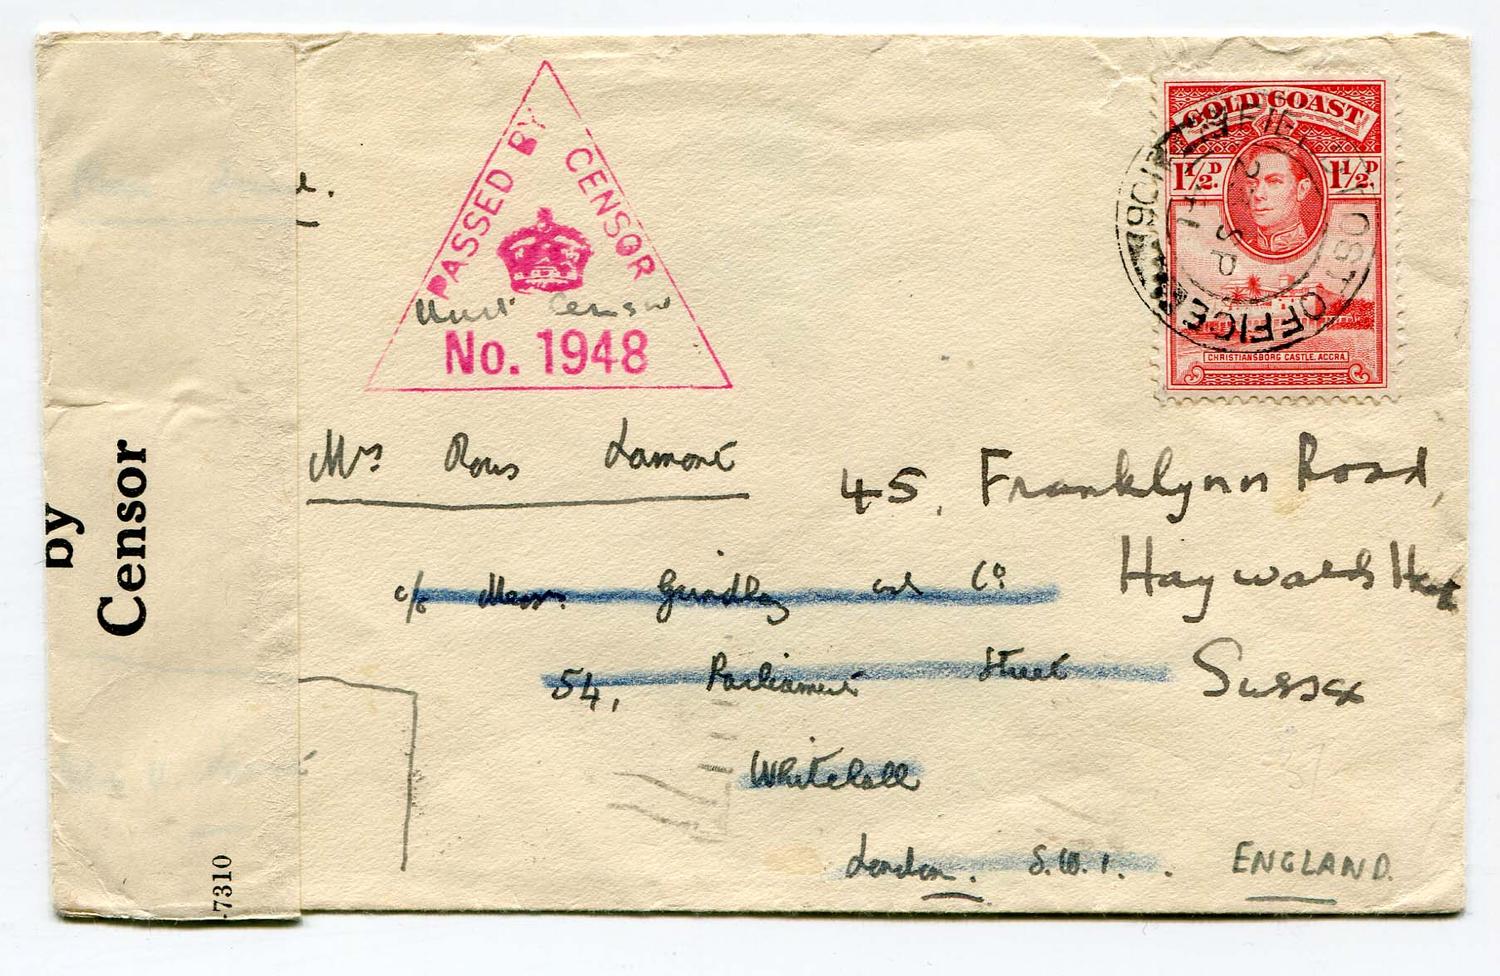 PASSED BY CENSOR
Unit Censor
No. 1948
GOLD COAST
1½D. 1½D
CHRISTIANSBORG CASTLE. ACCRA.
FIELD POST OFFICE
SP
by
Censor
7310
Mrs Ross Lamont
45, Franklynn Road,
c/o Messrs. Grindlay and Co.
Haywards Heath
54, Parliament Street
Sussex
Whitehall
London. S.W.1.
ENGLAND.